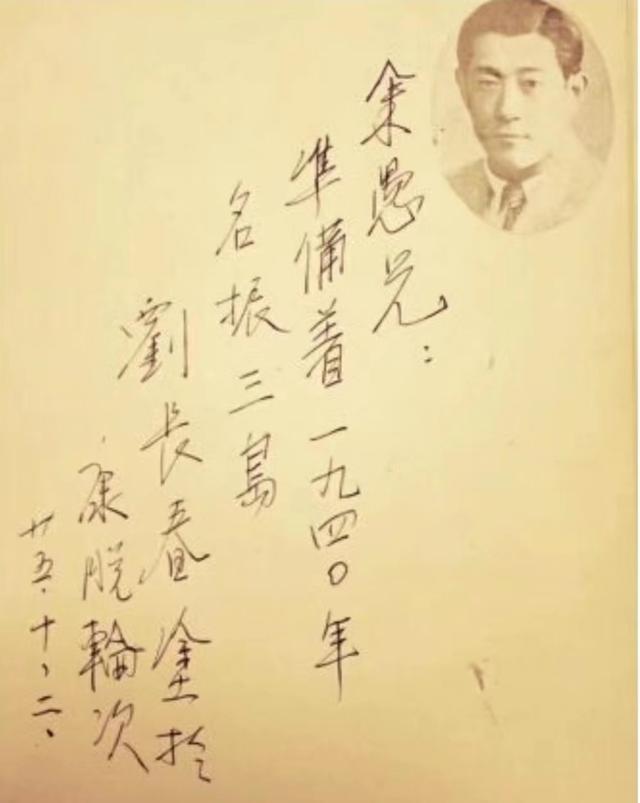 余愚兄：
準備着一九四〇年
名振三島
劉長春塗於
康脫輪次
廿五、十、二、